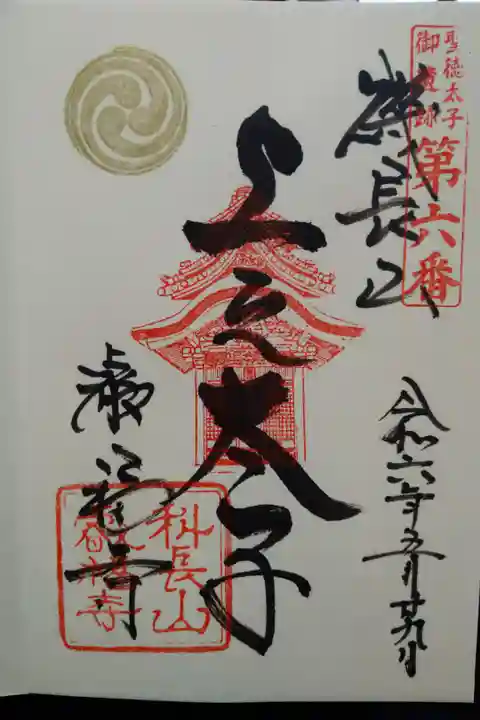 聖徳太子
御遺跡
第六番
磯長山
令和六年五月廿九日
上之太子
叡福寺
科長山
叡福寺